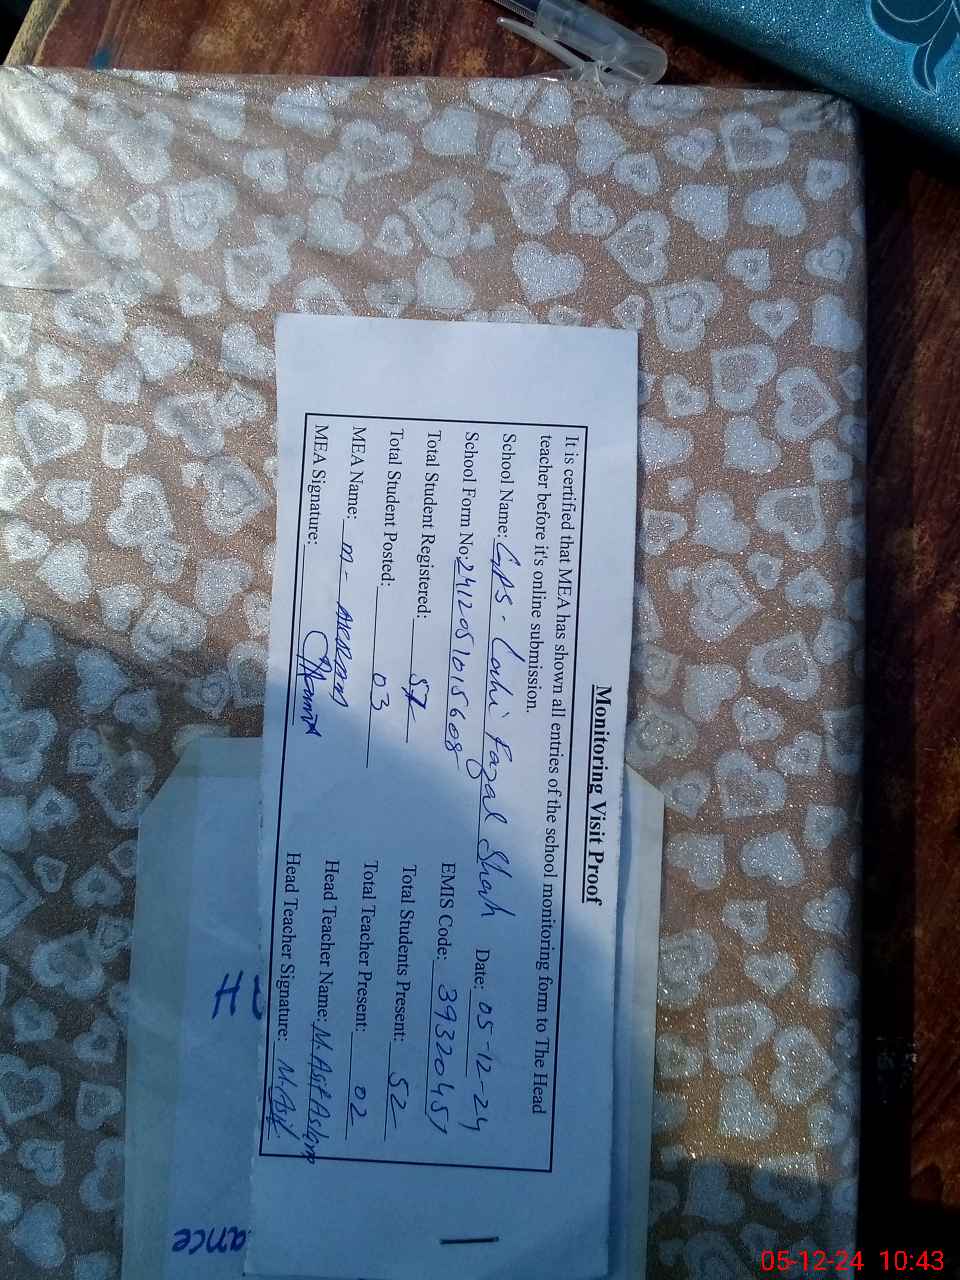 Monitoring Visit Proof
It is certified that MEA has shown all entries of the school monitoring form to The Head
teacher before it's online submission.
School Name: GPS - Lakhi Fazal Shah Date: 05-12-24
School Form No: 2412051015608 EMIS Code: 39320451
Total Student Registered: 57 Total Students Present: 52
Total Student Posted: 03 Total Teacher Present: 02
MEA Name: M- AKRAM Head Teacher Name: M. Asif Aslam
MEA Signature: Head Teacher Signature: M. Asif
ance
05-12-24 10:43